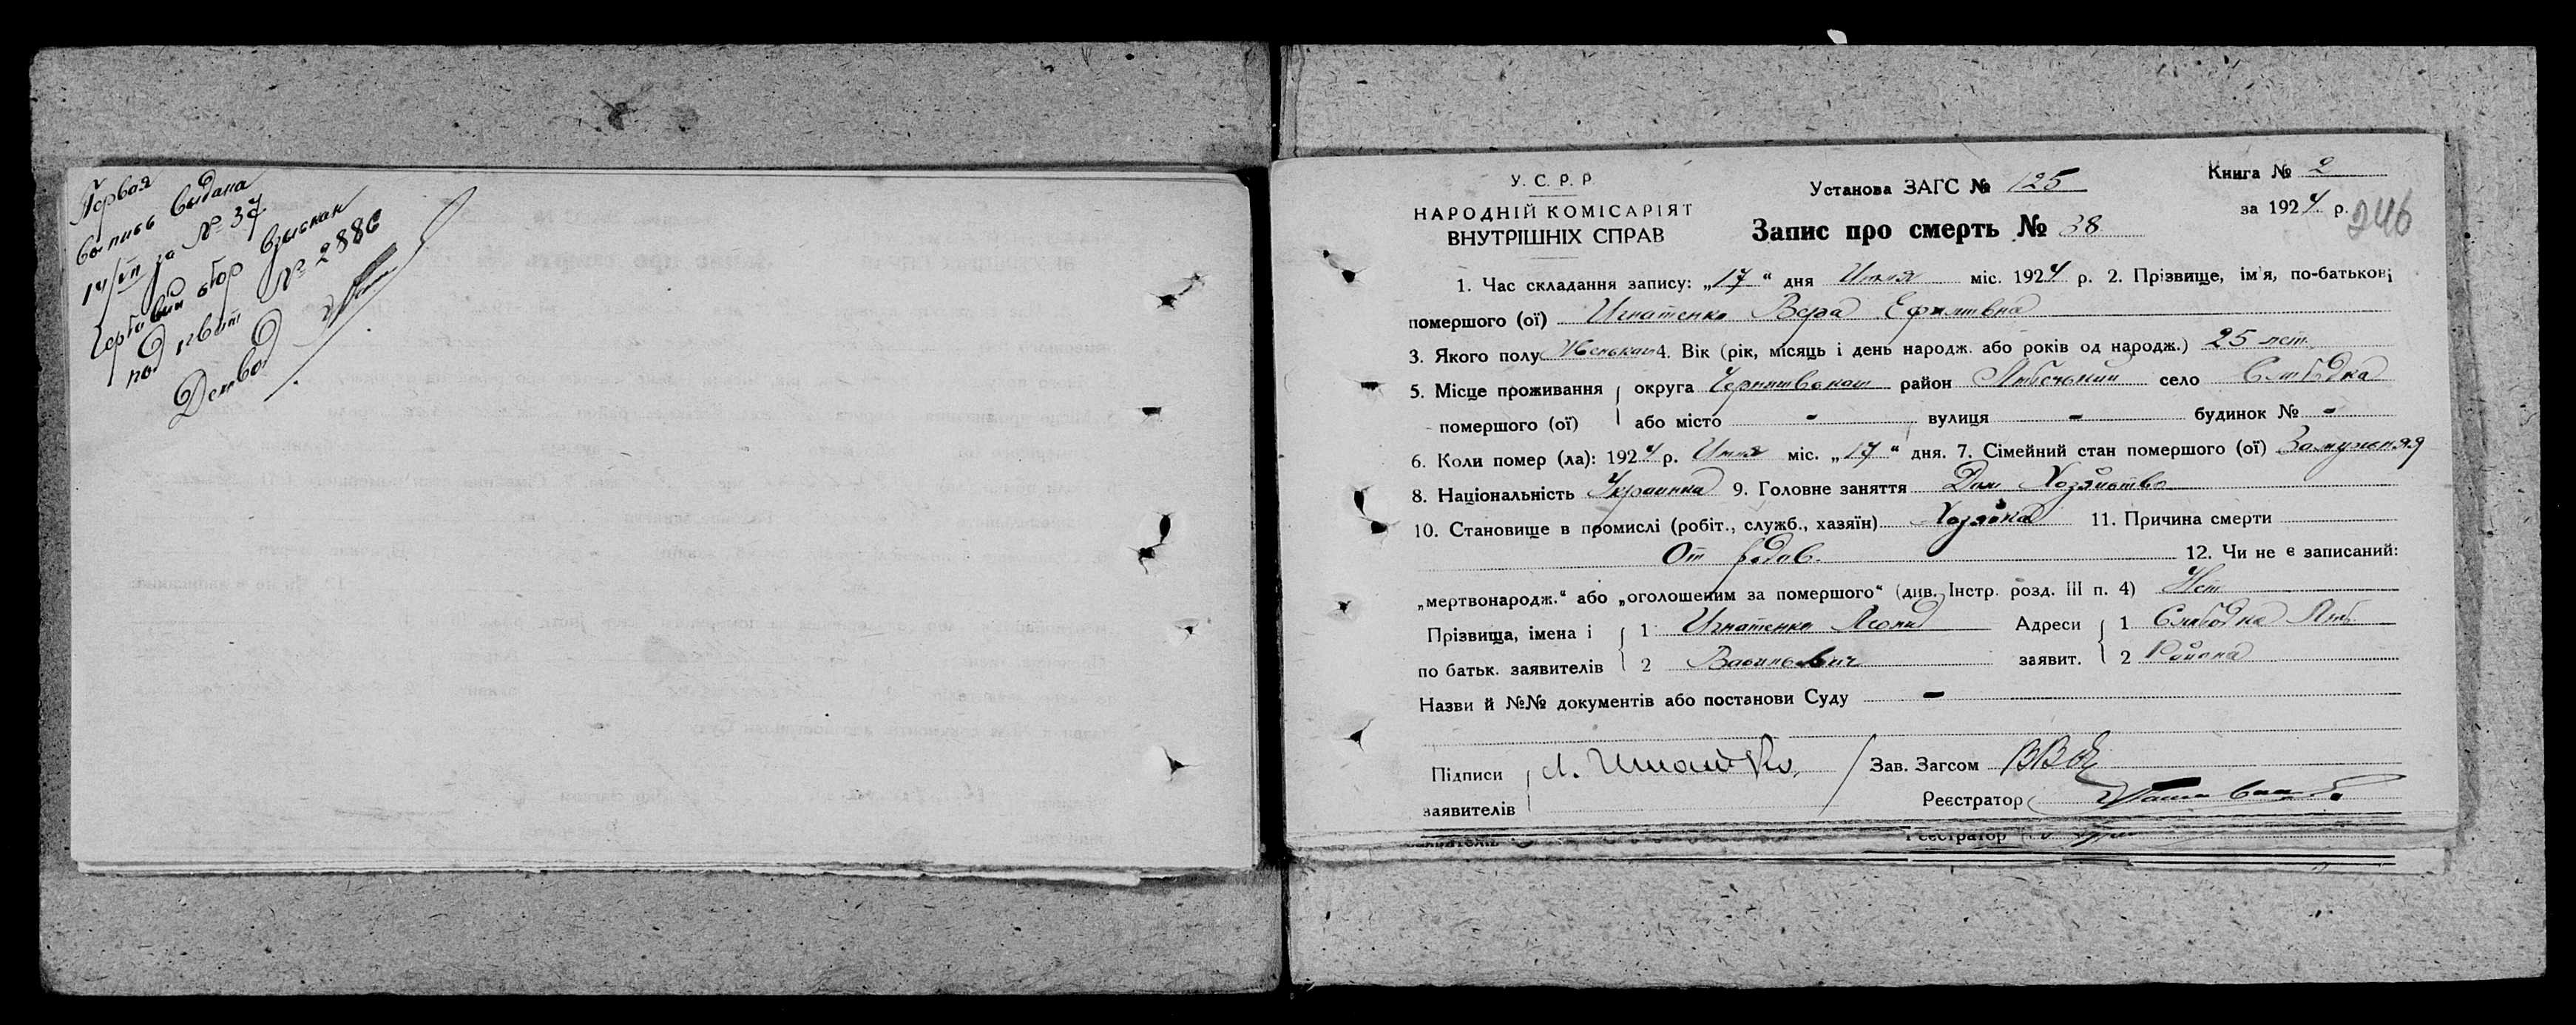 Первая
выпись выдана
14/VII за № 37
Гербовый сбор взыскан
под квит № 2886
У. С. Р. Р.
НАРОДНІЙ КОМІСАРІЯТ
ВНУТРІШНІХ СПРАВ
Установа ЗАГС № 125
Запис про смерть № 38
Книга № 2
за 1924 р.
246
1. Час складання запису: „17“ дня міс. 1924 р. 2. Прізвище, ім'я, по-батькові
помершого (ої) Игнатенко Вера
3. Якого полу Женькай 4. Вік (рік, місяць і день народж. або років од народж.) 25 лет
5. Місце проживання округа район село Слободка
помершого (ої) або місто - вулиця - будинок № -
6. Коли помер (ла): 1924 р. міс. „17“ дня. 7. Сімейний стан помершого (ої) Замужняя
8. Національність Украинка 9. Головне заняття Дом Хозяйство
10. Становище в промислі (робіт., служб., хазяїн) Хозяйка 11. Причина смерти
От родов. 12. Чи не є записаний:
„мертвонародж.“ або „оголошеним за помершого“ (див. Інстр. розд. III п. 4) Нет
Прізвища, імена і 1 Игнатенко Адреси 1 Слободка Люб.
по батьк. заявителів 2 Васильевич заявит. 2 Района
Назви й №№ документів або постанови Суду -
Підписи Зав. Загсом
заявителів Реєстратор
Реєстратор